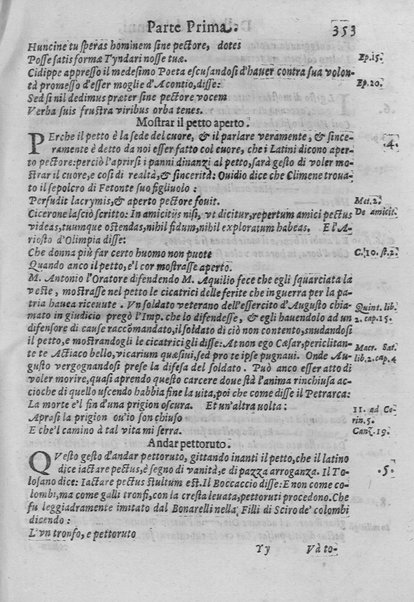 Parte Prima. 353
Huncine tu speras hominem sine pectore, dotes
Posse satis formæ Tyndari nosse tuæ. Ep. 15.
Cidippe appresso il medesimo Poeta escusandosi d'hauer contra sua volon-
tà promesso d'esser moglie d'Acontio, disse: Ep. 20.
Sed si nil dedimus præter sine pectore vocem
Verba suis frustra viribus orba tenes.
Mostrar il petto aperto.
PErche il petto è la sede del cuore, & il parlare veramente, & since- .4.
ramente è detto da noi esser fatto col cuore, che i Latini dicono aper-
to pectore: perciò l'aprirsi i panni dinanzi al petto, sarà gesto di voler mo-
strar il cuore, e così di realtà, & sincerità: Quidio dice che Climene troua-
to il sepolcro di Fetonte suo figliuolo:
Perfudit lacrymis, & aperto pectore fouit. Met. 2.
Cicerone lasciò scritto: In amicitijs nisi, vt dicitur, repertum amici pectus De amicit.
videas, tuumque ostendas, nihil fidum, nihil exploratum habeas. E l'A-
riosto d'Olimpia disse:
Che donna più far certo huomo non puote C. 10. st. 2.
Quando anco il petto, e'l cor mostrasse aperto.
M. Antonio l'Oratore difendendo M. Aquilio fece che egli squarciata la
veste, mostrasse nel petto le cicatrici delle ferite che in guerra per la pa-
tria hauea riceuute. Vn soldato veterano dell'essercito d'Augusto chia- Quint. lib.
mato in giudicio pregò l'Imp. che lo difendesse, & egli hauendolo ad un 2. cap. 15.
difensore di cause raccomandato, il soldato di ciò non contento, snudandosi
il petto, e mostrandogli le cicatrici gli disse: At non ego Cæsar, periclitan- Macr. Sat.
te te Actiaco bello, vicarium quæsiui, sed pro te ipse pugnaui. Onde Au- lib. 2. cap. 4
gusto vergognandosi prese la difesa del soldato. Può anco esser atto di
voler morire, quasi aprendo questo carcere doue stà l'anima rinchiusa ac-
cioche di quello uscendo habbia fine la uita, poi che come disse il Petrarca:
La morte è'l fin d'una prigion oscura. Et un'altra uolta: 11. ad Co-
Aprasi la prigion ou'io son chiuso rin. 5.
E che'l camino à tal vita mi serra. Canz. 19.
Andar pettoruto.
QVesto gesto d'andar pettoruto, gittando inanti il petto, che il latino
dice iactare pectus, è segno di vanità, e di pazza arroganza. Il To- .5.
losano dice: Iactare pectus stultum est. Il Boccaccio disse: E non come co-
lombi, ma come galli tronfi, con la cresta leuata, pettoruti procedono. Che
fu leggiadramente imitato dal Bonarelli nella Filli di Sciro de' colombi
dicendo:
L'vn tronfo, e pettoruto
Yy Và to-